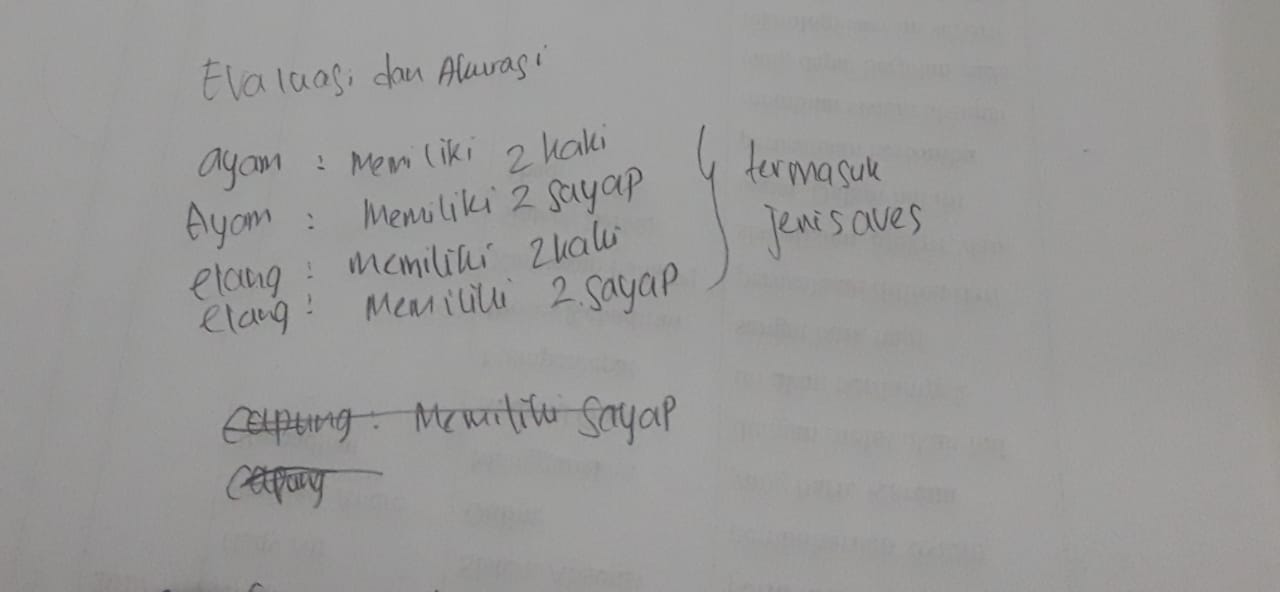 Evaluasi dan Akurasi
ayam : Memiliki 2 kaki
Ayam : Memiliki 2 sayap
elang : memiliki 2 kaki
elang : Memiliki 2 sayap
termasuk
jenis aves
Capung : Memiliki Sayap
Capung